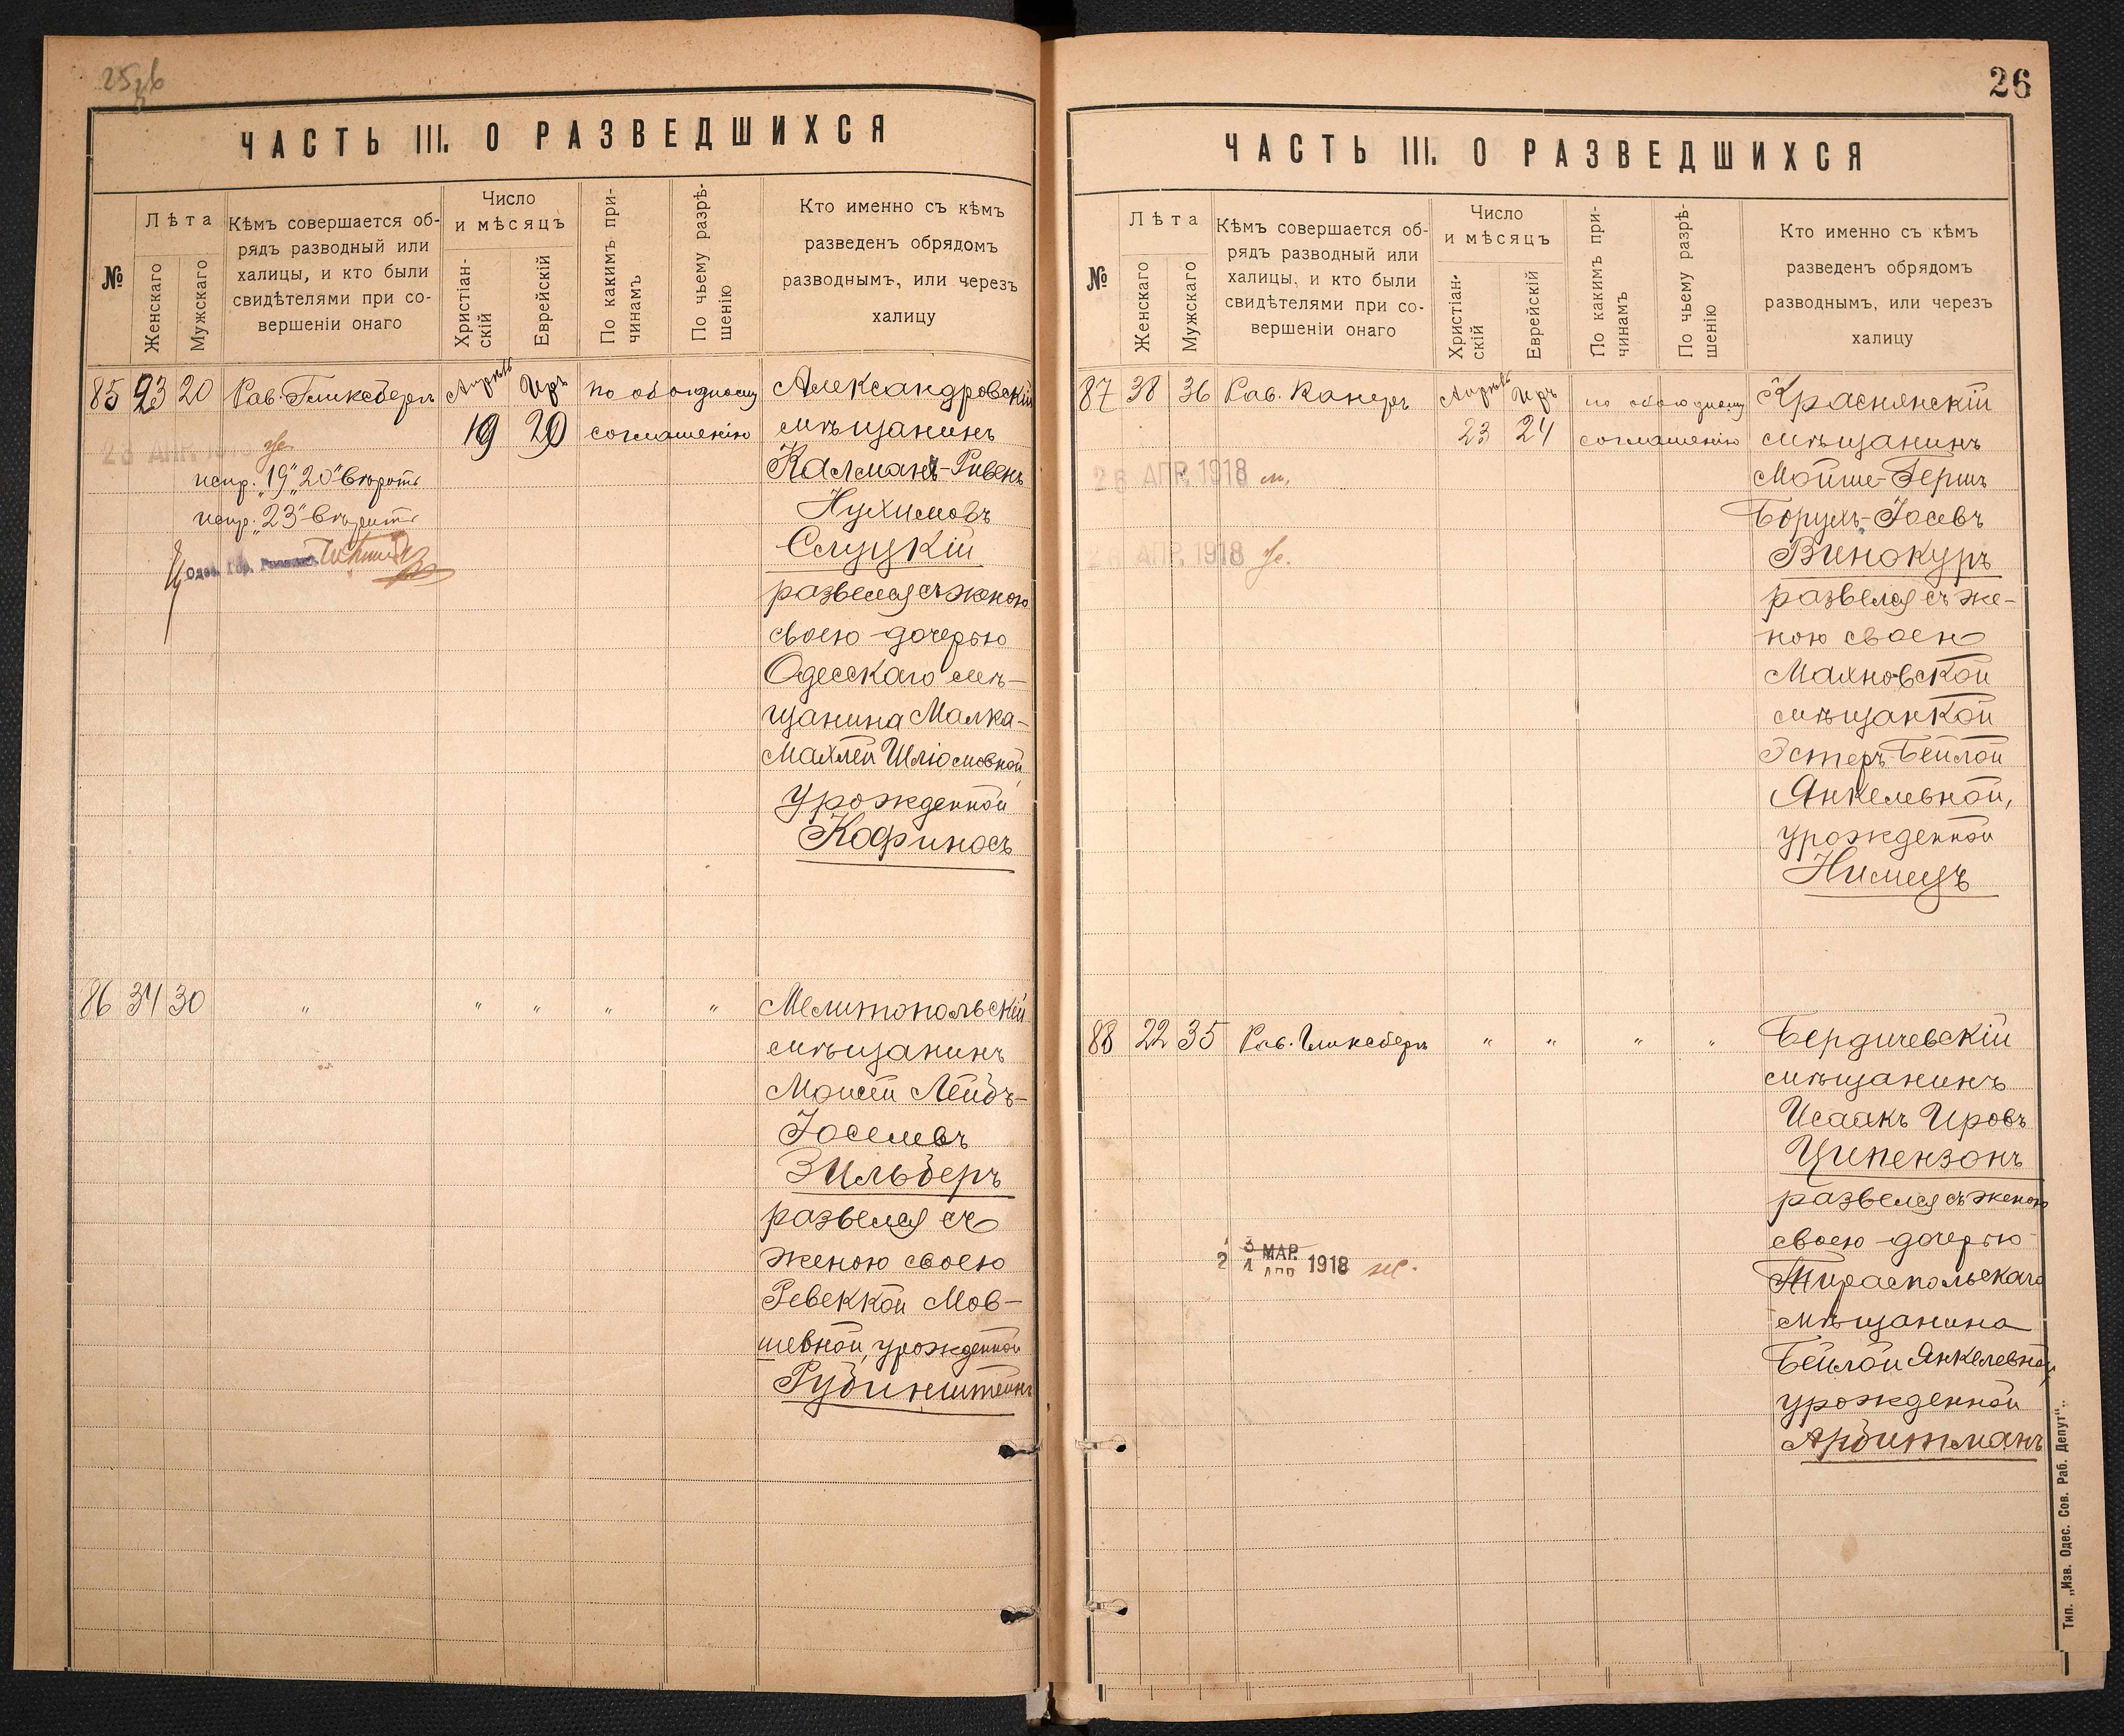 ЧАСТЬ III. О РАЗВЕДШИХСЯ
№
Лѣта
Женскаго
Мужскаго
Кѣмъ совершается об-
рядъ разводный или
халицы, и кто были
свидѣтелями при со-
вершеніи онаго
Число
и мѣсяцъ
Христіан-
скій
Еврейскій
По какимъ при-
чинамъ
По чьему разрѣ-
шенію
Кто именно съ кѣмъ
разведенъ обрядомъ
разводнымъ, или черезъ
халицу
85 23 20 Рав. Гликсбергъ Апрѣль Иръ по обоюдному
19 20 соглашенію
испр. "19" "20" вѣрить
испр. "23" вѣрить
Одес. Гор. Раввинъ
Александровскій
мѣщанинъ
Калманъ-Рувенъ
Нухимовъ
Слуцкій
развелся съ женою
своею дочерью
Одесскаго мѣ-
щанина Малка-
Махлей Шліомовной,
урожденной
Кофинасъ
86 34 30 " " " " "
Мелитопольскій
мѣщанинъ
Моисей Лейбъ-
Іоселевъ
Зильберъ
развелся съ
женою своею
Ревеккой Мов-
шевной, урожденной
Рубинштейнъ
26
ЧАСТЬ III. О РАЗВЕДШИХСЯ
№
Лѣта
Женскаго
Мужскаго
Кѣмъ совершается об-
рядъ разводный или
халицы, и кто были
свидѣтелями при со-
вершеніи онаго
Число
и мѣсяцъ
Христіан-
скій
Еврейскій
По какимъ при-
чинамъ
По чьему разрѣ-
шенію
Кто именно съ кѣмъ
разведенъ обрядомъ
разводнымъ, или черезъ
халицу
87 38 36 Рав. Канеръ Апрѣль Иръ по обоюдному
23 24 соглашенію
26 АПР. 1918
26 АПР. 1918
Краснянскій
мѣщанинъ
Мойше-Гершъ
Борухъ-Іосевъ
Винокуръ
развелся съ же-
ною своею
Махновской
мѣщанкой
Эстеръ-Бейлой
Янкелевной,
урожденной
Нимецъ
88 22 35 Рав. Гликсбергъ " " " "
МАР.
АПР 1918
Бердичевскій
мѣщанинъ
Исаакъ Ировъ
Ципензонъ
развелся съ женою
своею дочерью
Тираспольскаго
мѣщанина
Бейлой Янкелевной,
урожденной
Арбитманъ
Тип. „Изв. Одес. Сов. Раб. Депут“.